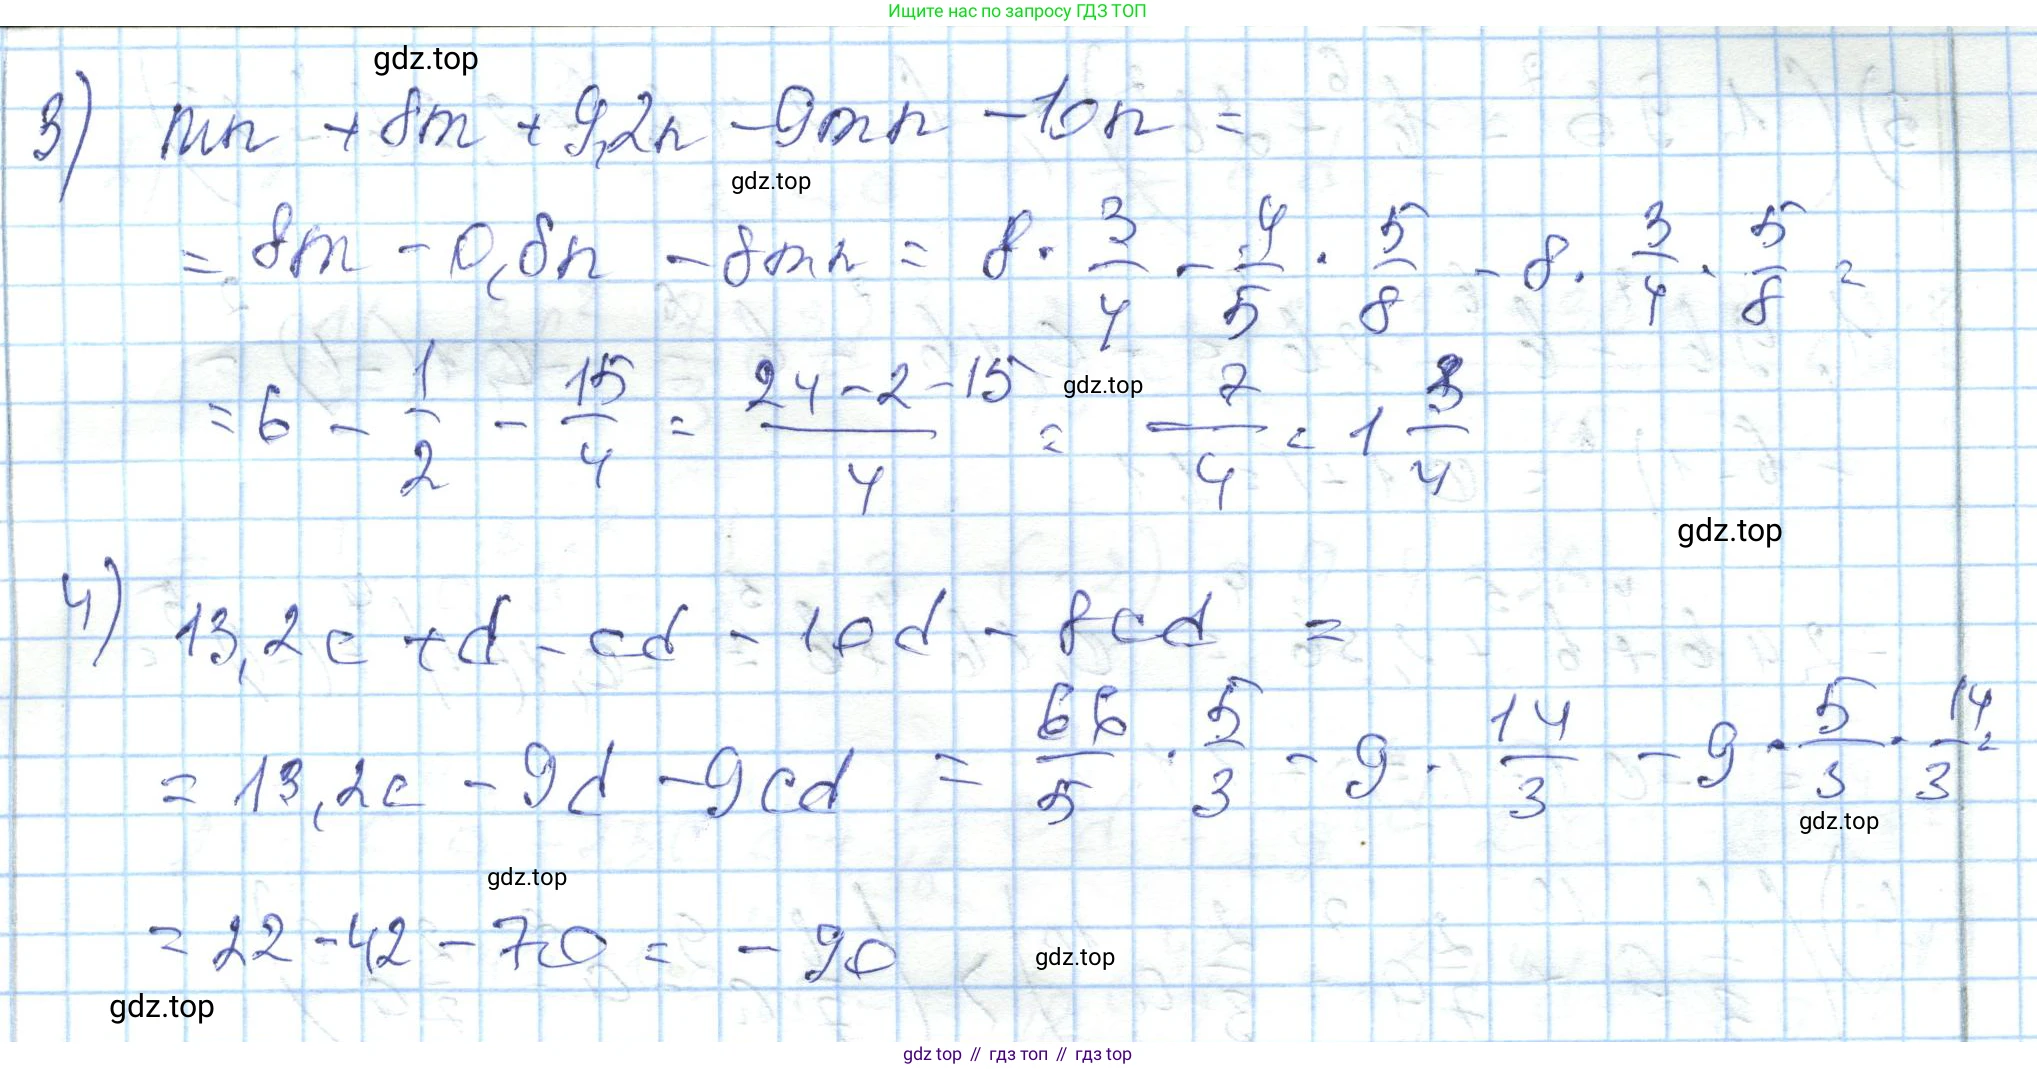 Ищите нас по запросу ГДЗ ТОП
gdz.top
3) mn + 8m + 9,2n - 9mn - 10n =
gdz.top
= 8m - 0,8n - 8mn = 8 · 3/4 - 4/5 · 5/8 - 8 · 3/4 · 5/8 =
= 6 - 1/2 - 15/4 = (24 - 2 - 15)/4 = 7/4 = 1 3/4
gdz.top
gdz.top
4) 13,2c + d - cd - 10d - 8cd =
= 13,2c - 9d - 9cd = 66/5 · 5/3 - 9 · 14/3 - 9 · 5/3 · 14/3 =
gdz.top
gdz.top
= 22 - 42 - 70 = - 90
gdz.top
gdz.top
gdz top // гдз топ // гдз top